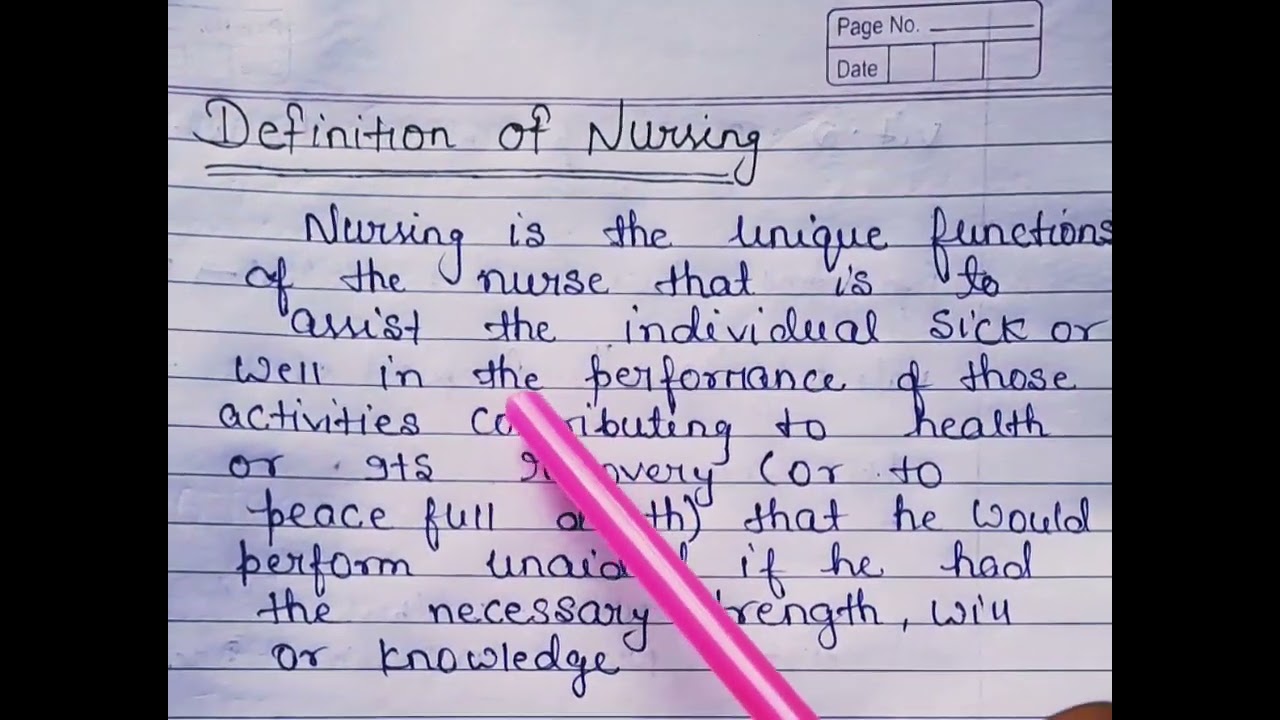 Page No.
Date
Definition of Nursing
Nursing is the unique functions
of the nurse that is to
assist the individual sick or
well in the performance of those
activities contributing to health
or its recovery (or to
peace full th) that he would
perform unaided if he had
the necessary strength, will
or knowledge